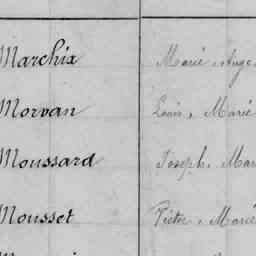 Marchix Marie, Ange
Morvan Louis, Marie
Moussard Joseph, Mar
Mousset Victor, Marie